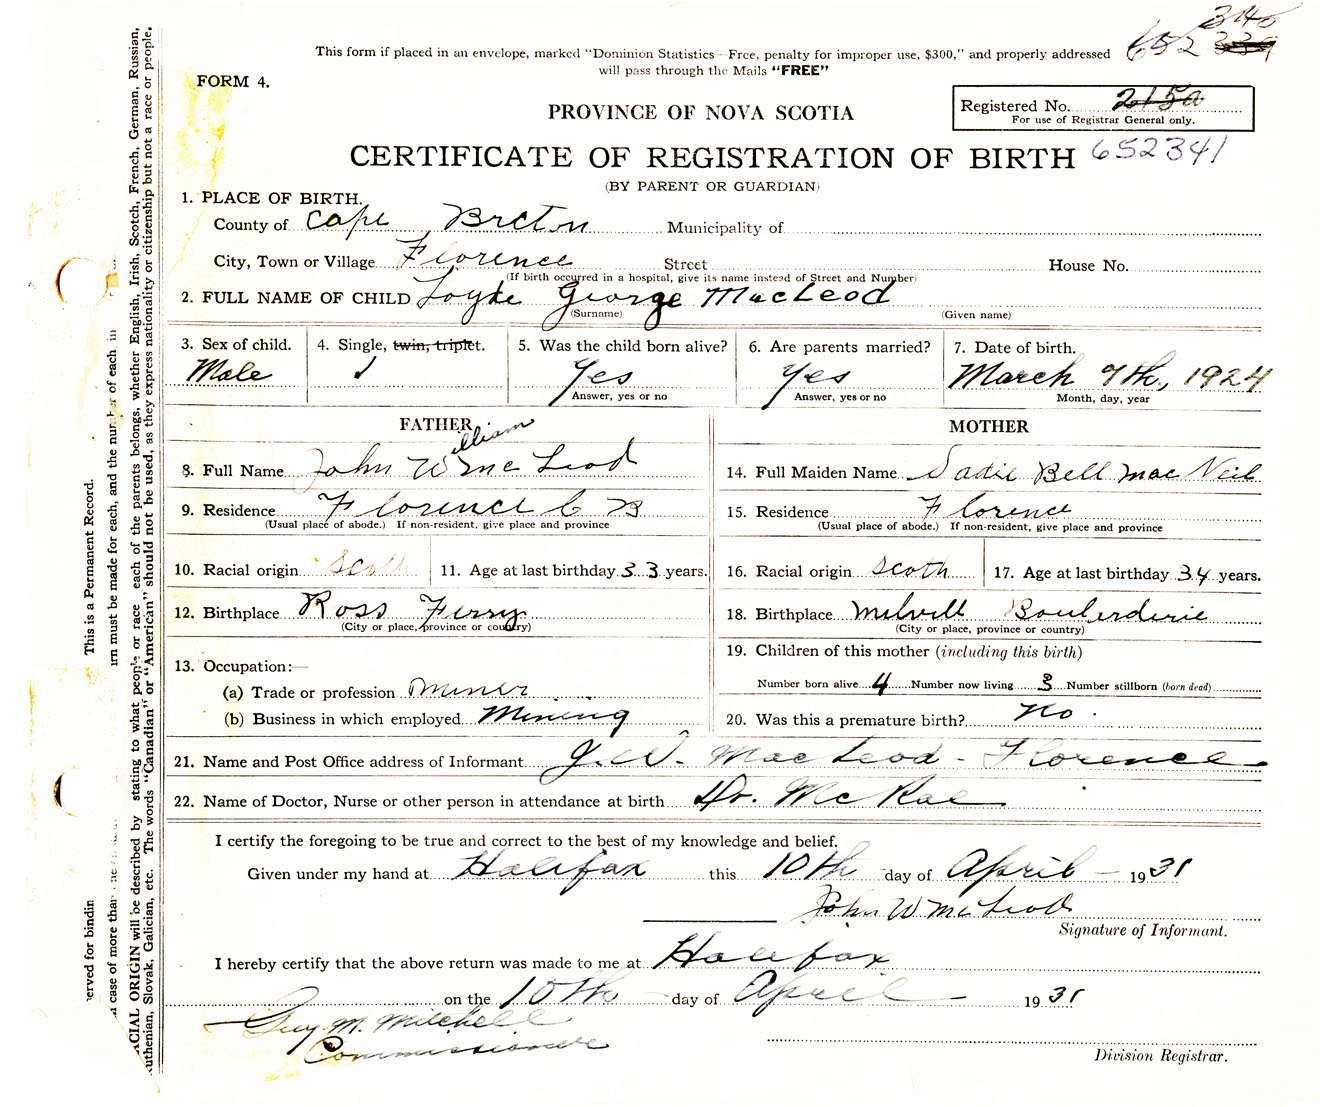 340
652 339
This form if placed in an envelope, marked "Dominion Statistics—Free, penalty for improper use, $300," and properly addressed
will pass through the Mails "FREE"
FORM 4.
PROVINCE OF NOVA SCOTIA
Registered No. 2150
For use of Registrar General only.
CERTIFICATE OF REGISTRATION OF BIRTH 652341
(BY PARENT OR GUARDIAN)
1. PLACE OF BIRTH.
County of Cape Breton Municipality of
City, Town or Village Florence Street House No.
(If birth occurred in a hospital, give its name instead of Street and Number)
2. FULL NAME OF CHILD Loyde George MacLeod
(Surname) (Given name)
3. Sex of child. 4. Single, twin, triplet. 5. Was the child born alive? 6. Are parents married? 7. Date of birth.
Male Yes Yes March 7th, 1924
Answer, yes or no Answer, yes or no Month, day, year
FATHER MOTHER
illiam
8. Full Name John W Mc Leod 14. Full Maiden Name Sadie Bell Mac Neil
9. Residence Florence C B 15. Residence Florence
(Usual place of abode.) If non-resident, give place and province (Usual place of abode.) If non-resident, give place and province
10. Racial origin Scoth 11. Age at last birthday 33 years. 16. Racial origin Scoth 17. Age at last birthday 34 years.
12. Birthplace Ross Ferry 18. Birthplace Melvill Boulerderie
(City or place, province or country) (City or place, province or country)
13. Occupation:— 19. Children of this mother (including this birth)
(a) Trade or profession Miner Number born alive 4 Number now living 3 Number stillborn (born dead)
(b) Business in which employed Mining 20. Was this a premature birth? No.
21. Name and Post Office address of Informant J. W. MacLeod - Florence
22. Name of Doctor, Nurse or other person in attendance at birth Dr. McRae
I certify the foregoing to be true and correct to the best of my knowledge and belief.
Given under my hand at Halifax this 10th day of April 1931
John W McLeod
Signature of Informant.
I hereby certify that the above return was made to me at Halifax
on the 10th day of April 1931
Guy M. Mitchell
Commissioner
Division Registrar.
erved for bindin This is a Permanent Record.
case of more than must be made for each, and the number of each, in
CIAL ORIGIN will be described by stating to what people or race each of the parents belongs, whether English, Irish, Scotch, French, German, Russian,
uthenian, Slovak, Galician, etc. The words "Canadian" or "American" should not be used, as they express nationality or citizenship but not a race or people.